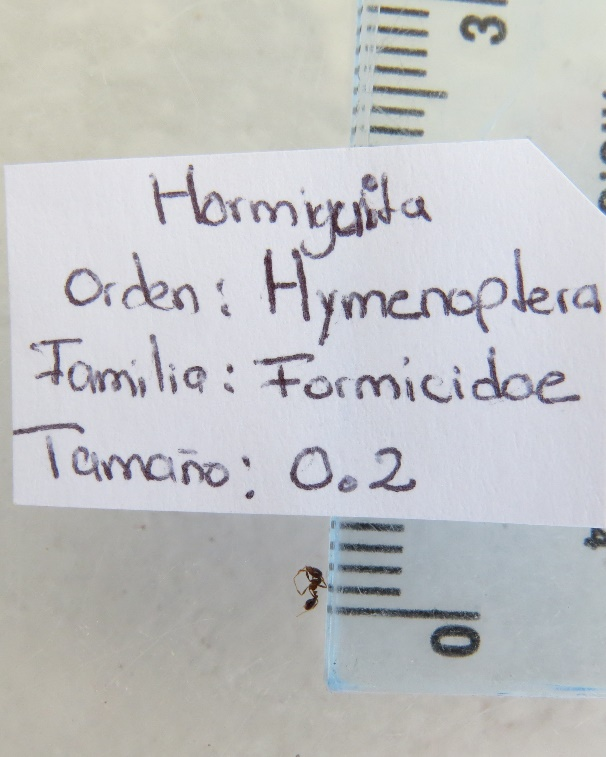 3
Hormiguita
Orden: Hymenoptera
Familia: Formicidae
Tamaño: 0.2
0